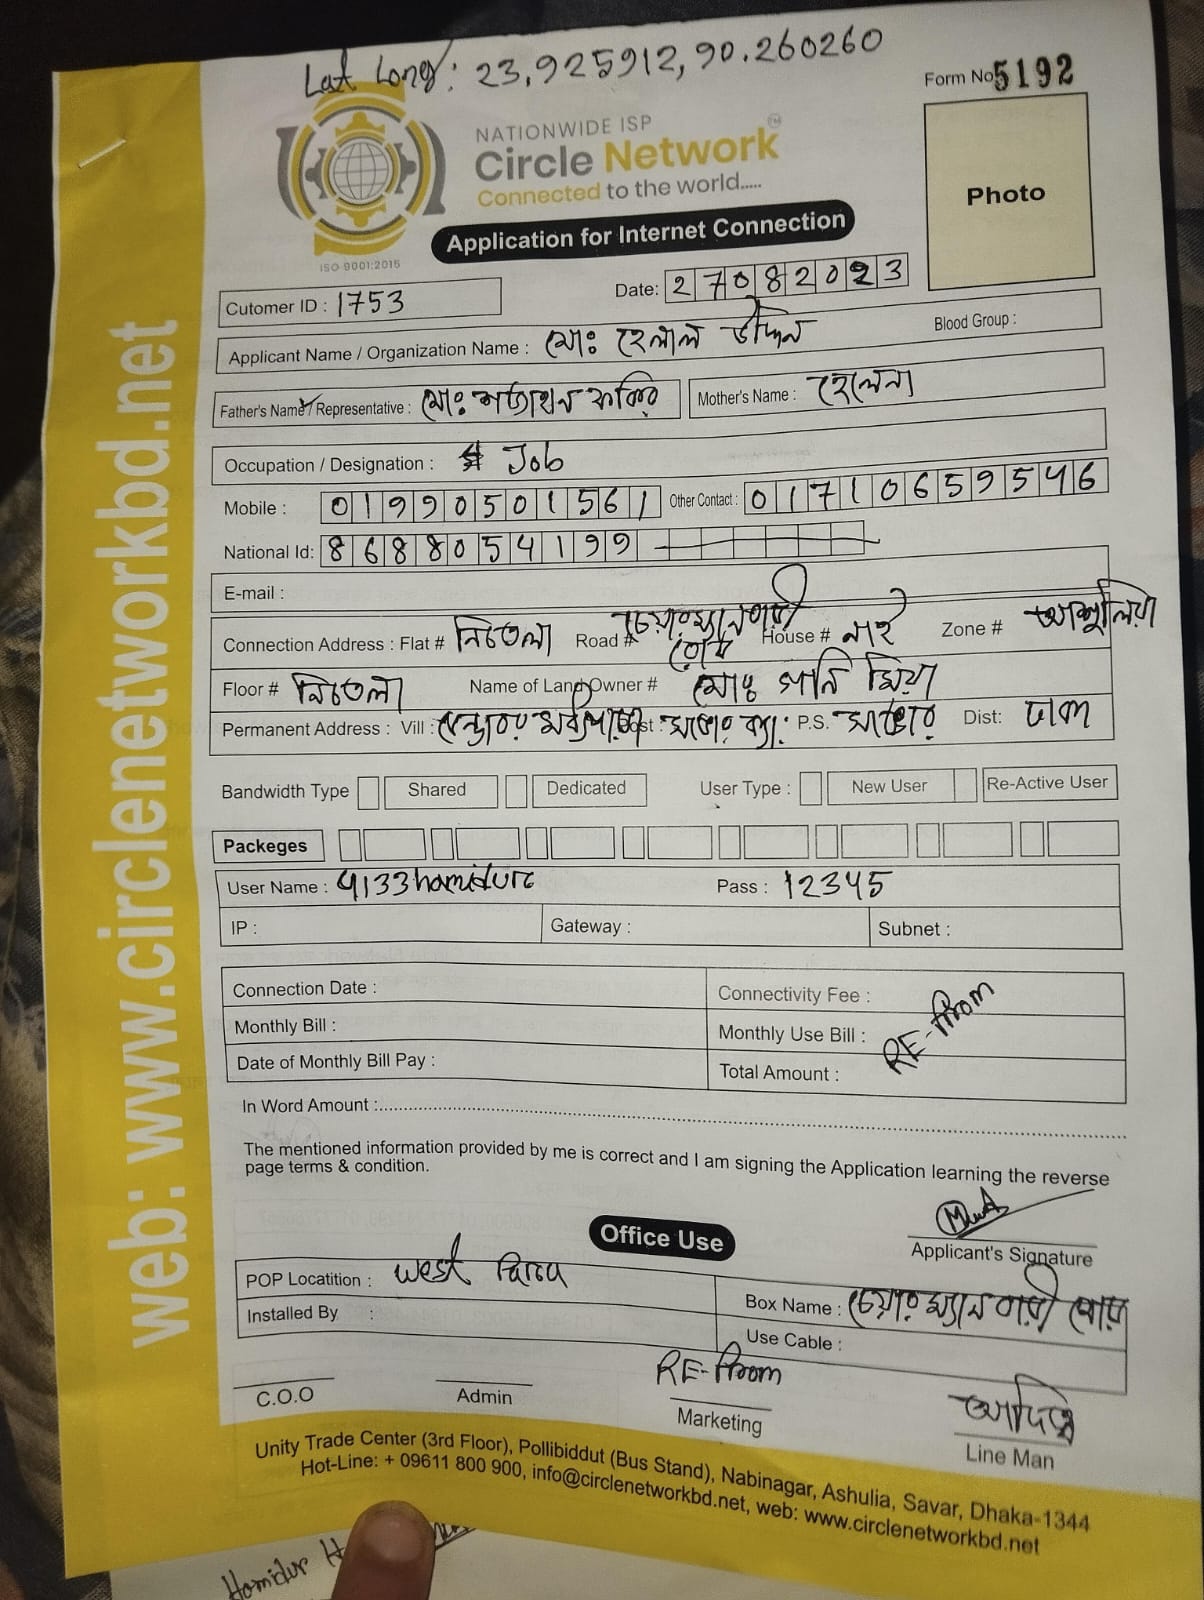 Lat Long: 23.925912, 90.260260
Form No 5192
NATIONWIDE ISP
Circle Network TM
Connected to the world.....
Photo
Application for Internet Connection
ISO 9001:2015
Date: 27082023
Cutomer ID : 1753
Applicant Name / Organization Name : মোঃ হেলাল উদ্দিন Blood Group :
Father's Name / Representative : মোঃ ফকির Mother's Name : হেলেনা
Occupation / Designation : Job
Mobile : 01990501561 Other Contact : 01710659546
National Id: 8688054199
E-mail :
Connection Address : Flat # নিচতলা Road # চেয়ারম্যান বাড়ী রোড House # নাই Zone # আশুলিয়া
Floor # নিচতলা Name of Land Owner # মোঃ গনি মিয়া
Permanent Address : Vill : Post : সাভার ক্যা: P.S. সাভার Dist: ঢাকা
Bandwidth Type Shared Dedicated User Type : New User Re-Active User
Packeges
User Name : 4133hamidurc Pass : 12345
IP : Gateway : Subnet :
Connection Date : Connectivity Fee :
Monthly Bill : Monthly Use Bill :
RE-From
Date of Monthly Bill Pay : Total Amount :
In Word Amount :
The mentioned information provided by me is correct and I am signing the Application learning the reverse
page terms & condition.
Applicant's Signature
Office Use
POP Locatition : West Parra Box Name : চেয়ারম্যান বাড়ী রোড
Installed By : Use Cable :
RE-From
C.O.O Admin Marketing Line Man
Unity Trade Center (3rd Floor), Pollibiddut (Bus Stand), Nabinagar, Ashulia, Savar, Dhaka-1344
Hot-Line: + 09611 800 900, info@circlenetworkbd.net, web: www.circlenetworkbd.net
web: www.circlenetworkbd.net
Hamidur